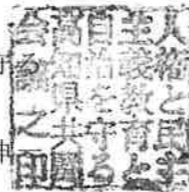 人権と民主
主義教育と
自治を守る
高知県共闘
会議之印